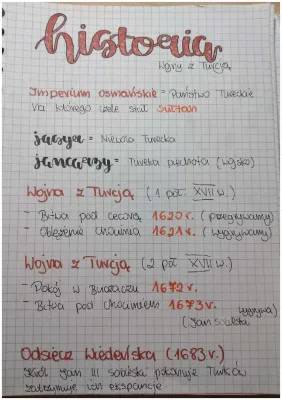 historia
Wojny z Turcją
Imperium osmańskie = Państwo Tureckie
Na którego czele stał Sułtan
jasyr = Niewola Turecka
janczarzy = Turecka piechota (wojsko)
Wojna z Turcją (1 poł. XVII w.)
- Bitwa pod Cecorą 1620 r. (przegrywamy)
- Oblężenie Chocimia 1621 r. (wygrywamy)
Wojna z Turcją (2 poł. XVII w.)
- Pokój w Buczaczu 1672 r.
- Bitwa pod Chocimiem 1673 r. (wygrywa
(Jan Sobieski
Odsiecz Wiedeńska (1683 r.)
Król Jan III Sobieski pokonuje Turków
zatrzymuje ich ekspansję